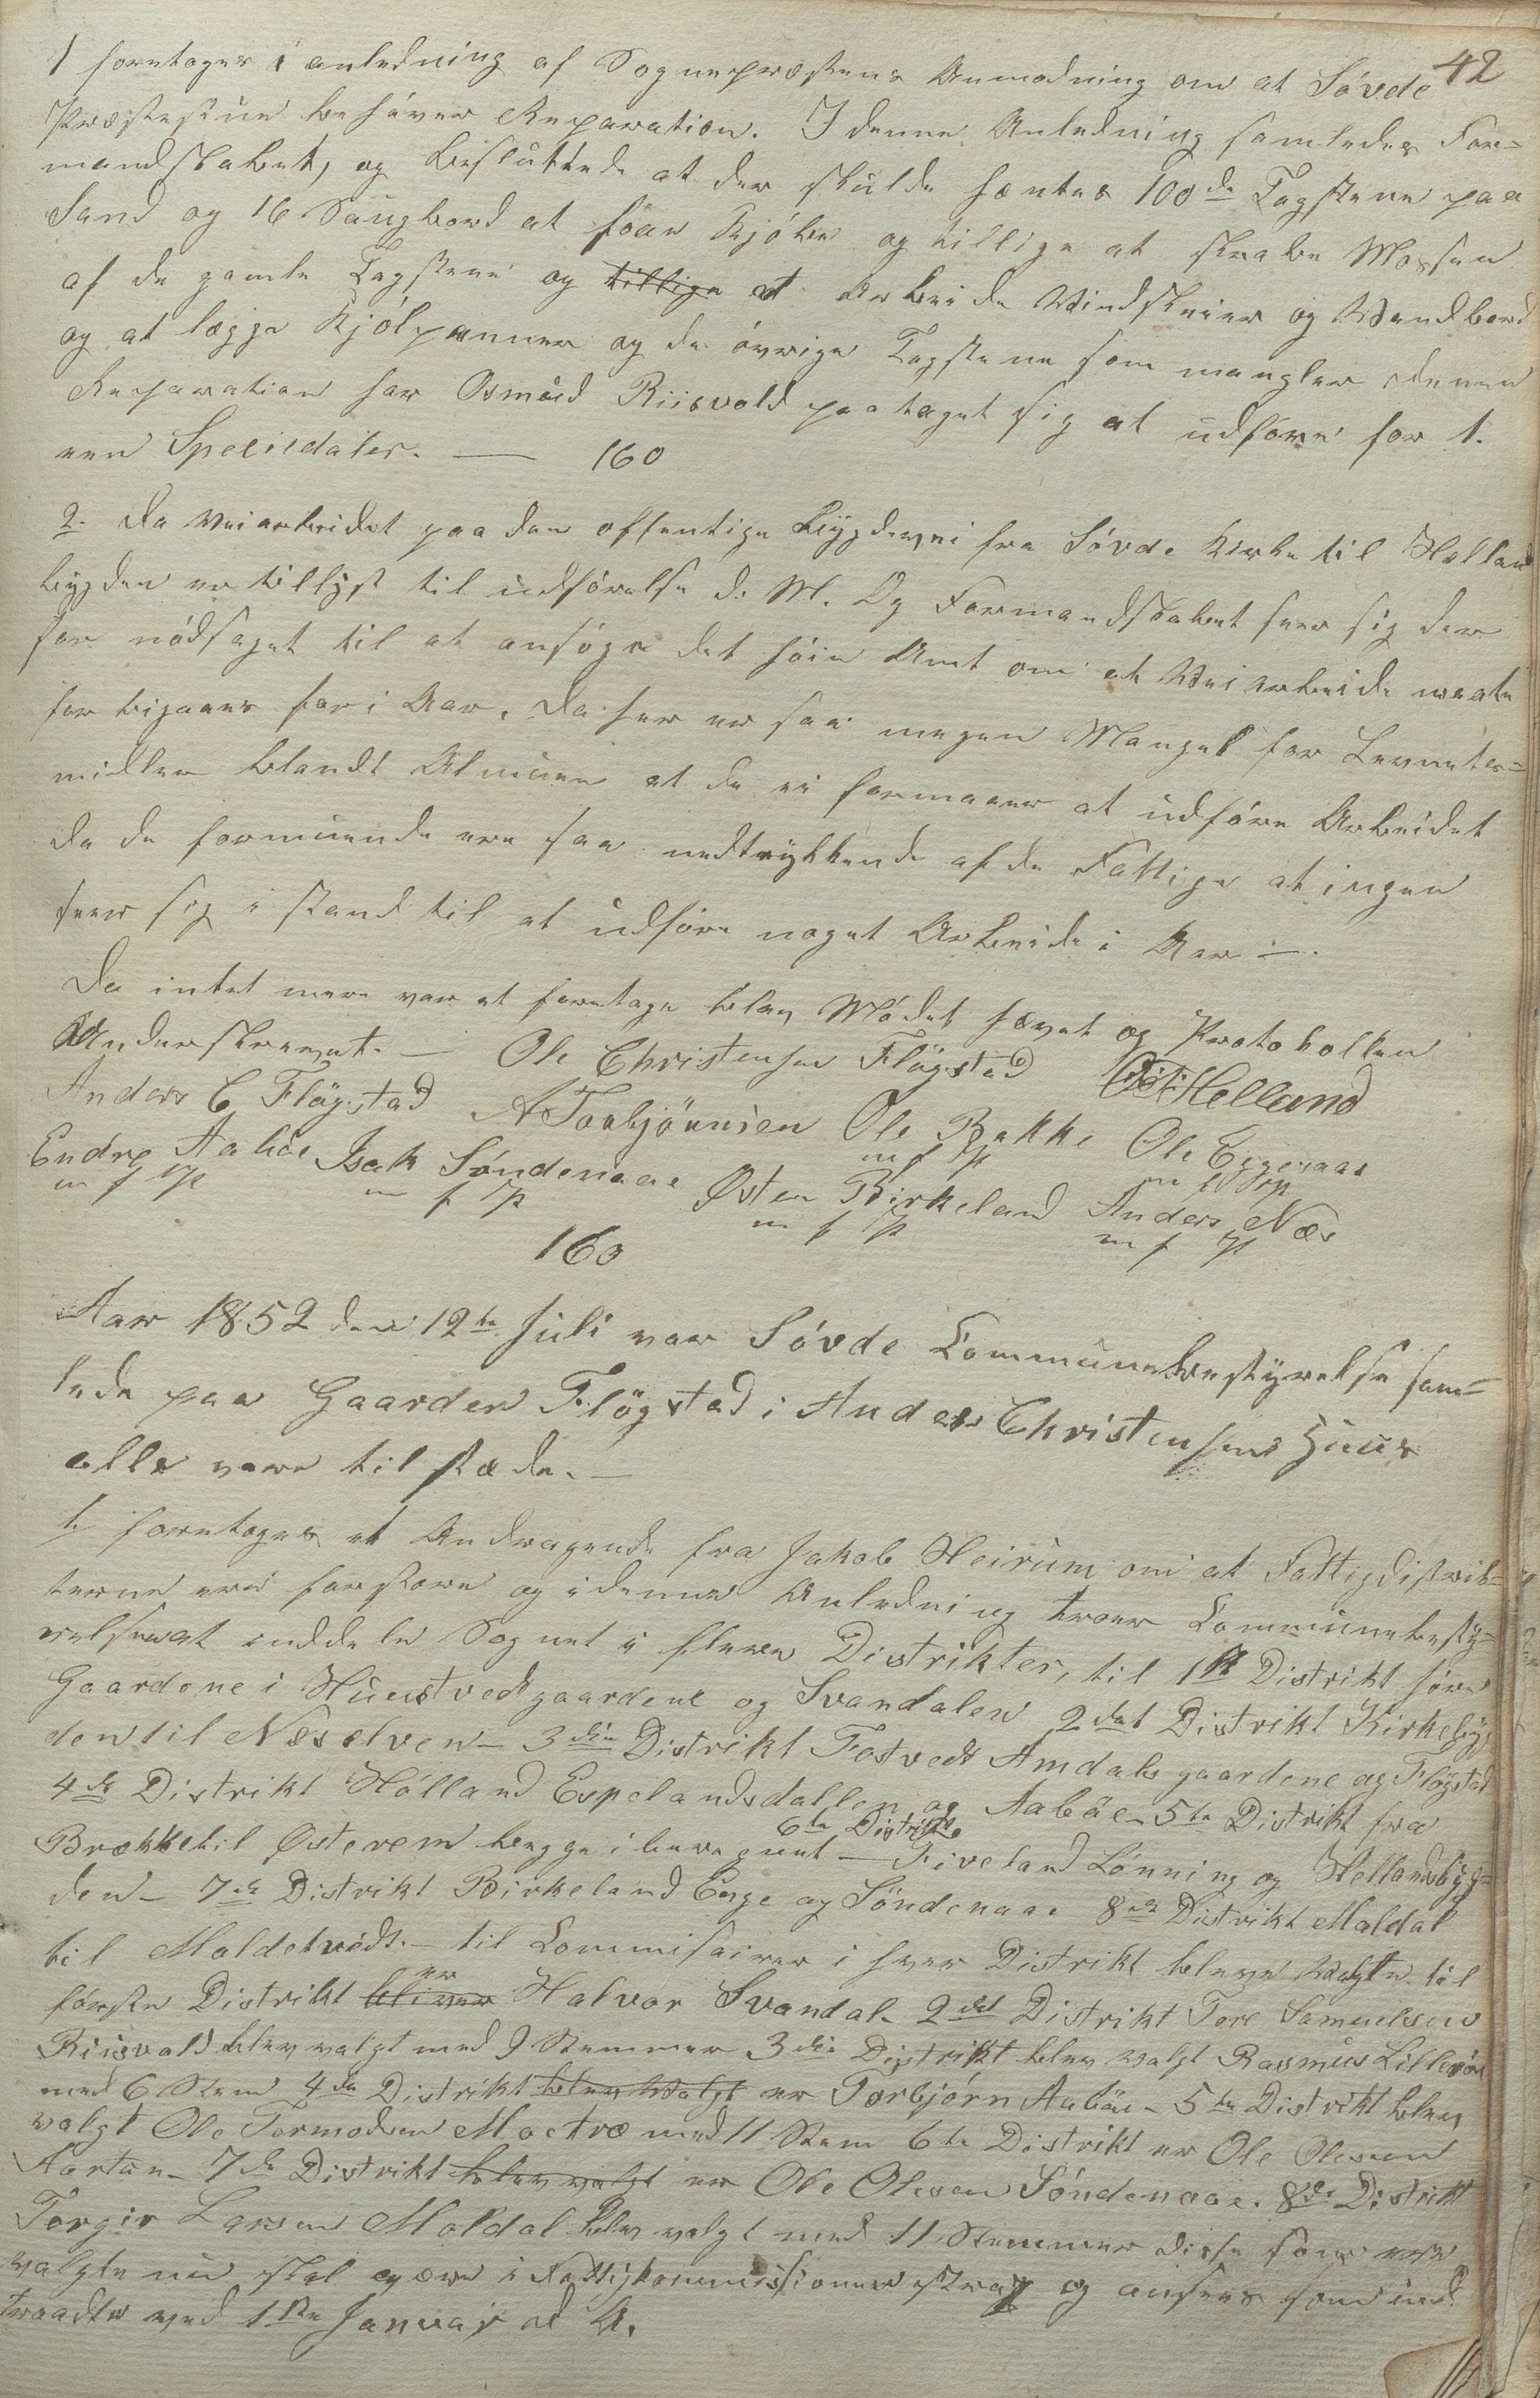 42
1 foretoges i anledning af Sognepræstens Anmodning om at Sövde
Præstestue behöver Reparation. I denne Anledning samledes For=
mandskabet, og besluttede at der skulde hentes 100de Tagstene paa
Sand og 16 Saugbord at faae kjöbe og tillige at skrabe Mossen
af de gamle Tagstene og tillige at Arbeide Vindskeier og Vandbord
og at lægge Kjölpanner og de övrige Tagstene som mangler denne
Reparation har Osmund Riisvold paataget sig at udföre for 1.
een Speciedaler. — 160
2. Da Veiarbeidet paa den offentlige Bÿgdevei fra Sövde Kirke til Hælland
bÿgden er tillÿst til udförelse d. M. Og Formandskabet seer sig der
for nödsaget til at ansöge det höie Amt om at Veiarbeide maate
forbigaaes for i Aar, da her er saa megen Mangel for Levnets=
midler blandt Almuen at de ei formaaer at udföre Arbeidet
da de formuende ere saa nedtrÿkkende af de Fattige at ingen
seer sig i stand til at udföre noget Arbeide i Aar —.
Da intet mere var at foretage blev Mödet hævet og Protokollen
Underskrevet. — Ole Christensen Flögstad O. T. Helland
Anders C Flögstad A Torbjörnsen Ole Bakke Ole Eggenaas
m f P m f P
Endre Aaböe Isak Söndenaae Østen Birkeland Anders Næs
m f P m f P m f P m f P
160
Aar 1852 den 12te Juli var Sövde Communebestÿrelse sam=
lede paa Gaarden Flögstad i Anders Christensens Huus
alle vare til stæde. —
1. foretoges et Andragende fra Jakob Heirum om at Fattigdistrik=
terne ere forstore og i denne Anledning troer Communebestÿ=
relsen at inddele Sognet i flere Distrikter, til 1ste Distrikt hörer
Gaardene i Huustvedtgaardene og Svandalen 2det Distrikt Kirkebÿg
den til Næselven — 3die Distrikt Fostvedt Amdals gaardene og Flögstad
4de Distrikt Hölland Espelandsdallen og Aaböe — 5te Distrikt fra
Brække til Østerem begge iberegnet — 6te Distrikt Fiveland Lönning og Hellandsbÿg=
den — 7de Distrikt Birkeland Enge og Söndenaae 8de Distrikt Maldal
til Maldetvedt. — til Commisairer i hver Distrikt bleve Valgte til
förste Distrikt bliver er Halvor Svandal — 2det Distrikt Tore Samuelsen
Riisvold blev valgt med 9 Stemmer 3die Distrikt blev valgt Rasmus Lillevör
med 6 Stem 4de Distrikt blev Valgt er Torbjörn Aaböe — 5te Distrikt blev
valgt Ole Tormodsen Moetræ med 11 Stem 6te Distrikt er Ole Olesen
Aartun — 7de Distrikt blev valgt er Ole Olesen Söndenaae. 8de Distrikt
Torgir Larsen Maldal blev valgt med 11 Stemmer disse som ere
valgte nu skal være i Fattigkommissionen strax og ansees som ind
traadte ved 1ste Januar d. A.